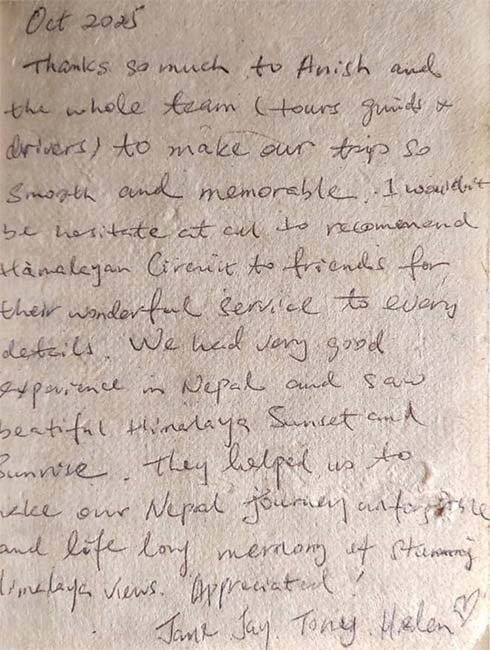 Oct 2025
Thanks so much to Anish and
the whole team (tours guids &
drivers) to make our trip so
smooth and memorable. I wouldn't
be hesitate at all to recommend
Hamalayan Circuit to friends for
their wonderful service to every
details. We had very good
experience in Nepal and saw
beatiful Himalaya Sunset and
Sunrise. They helped us to
make our Nepal journey unforgettable
and life long memory of stunning
Himalaya views. Appreciated!
Jay Tony Helen ♡